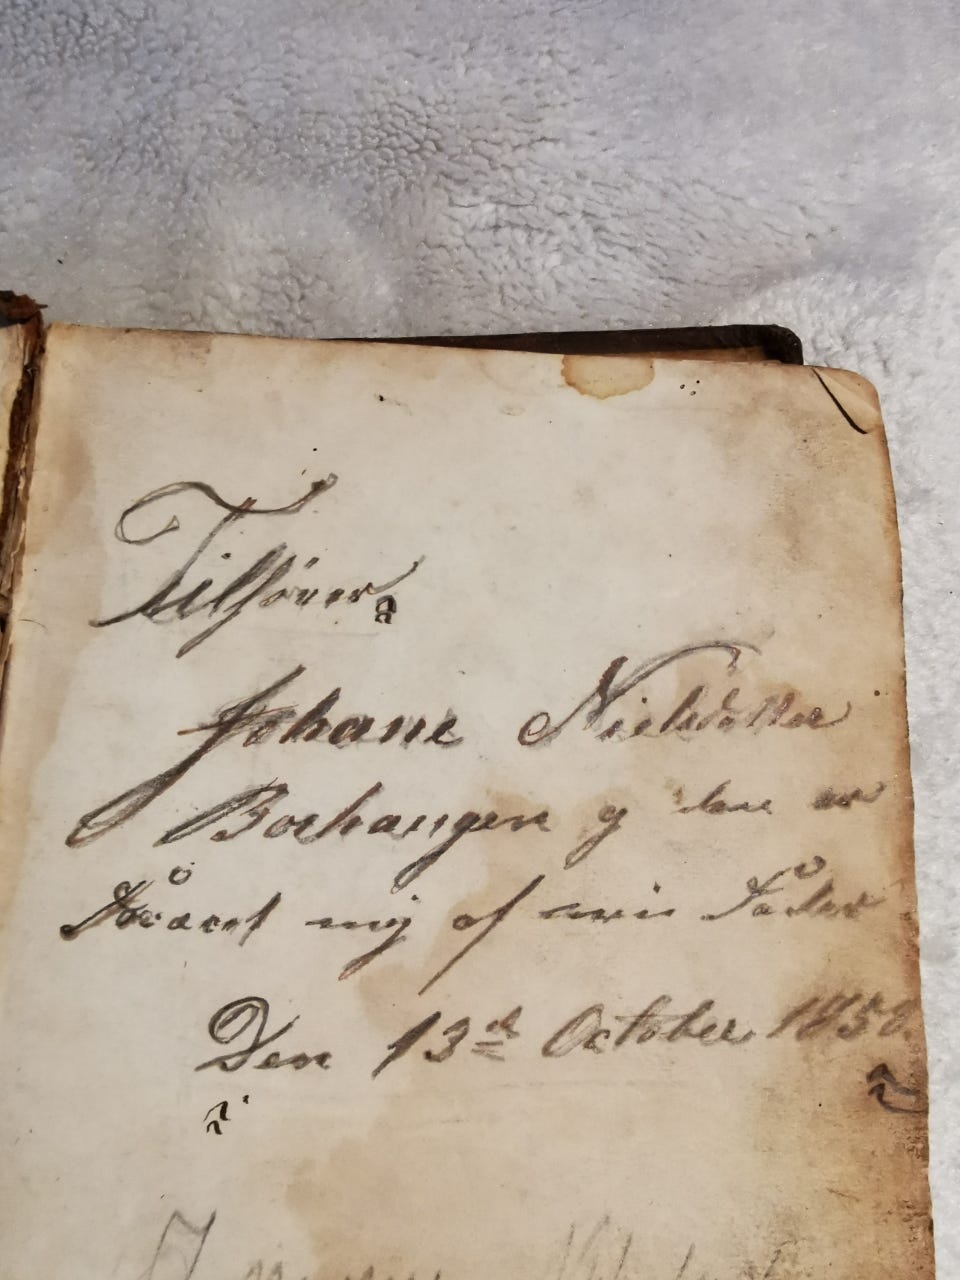 Tilhører
Johane Nielsdatter
Borhaugen og den er
Foræret mig af min Fader
Den 13de October 185